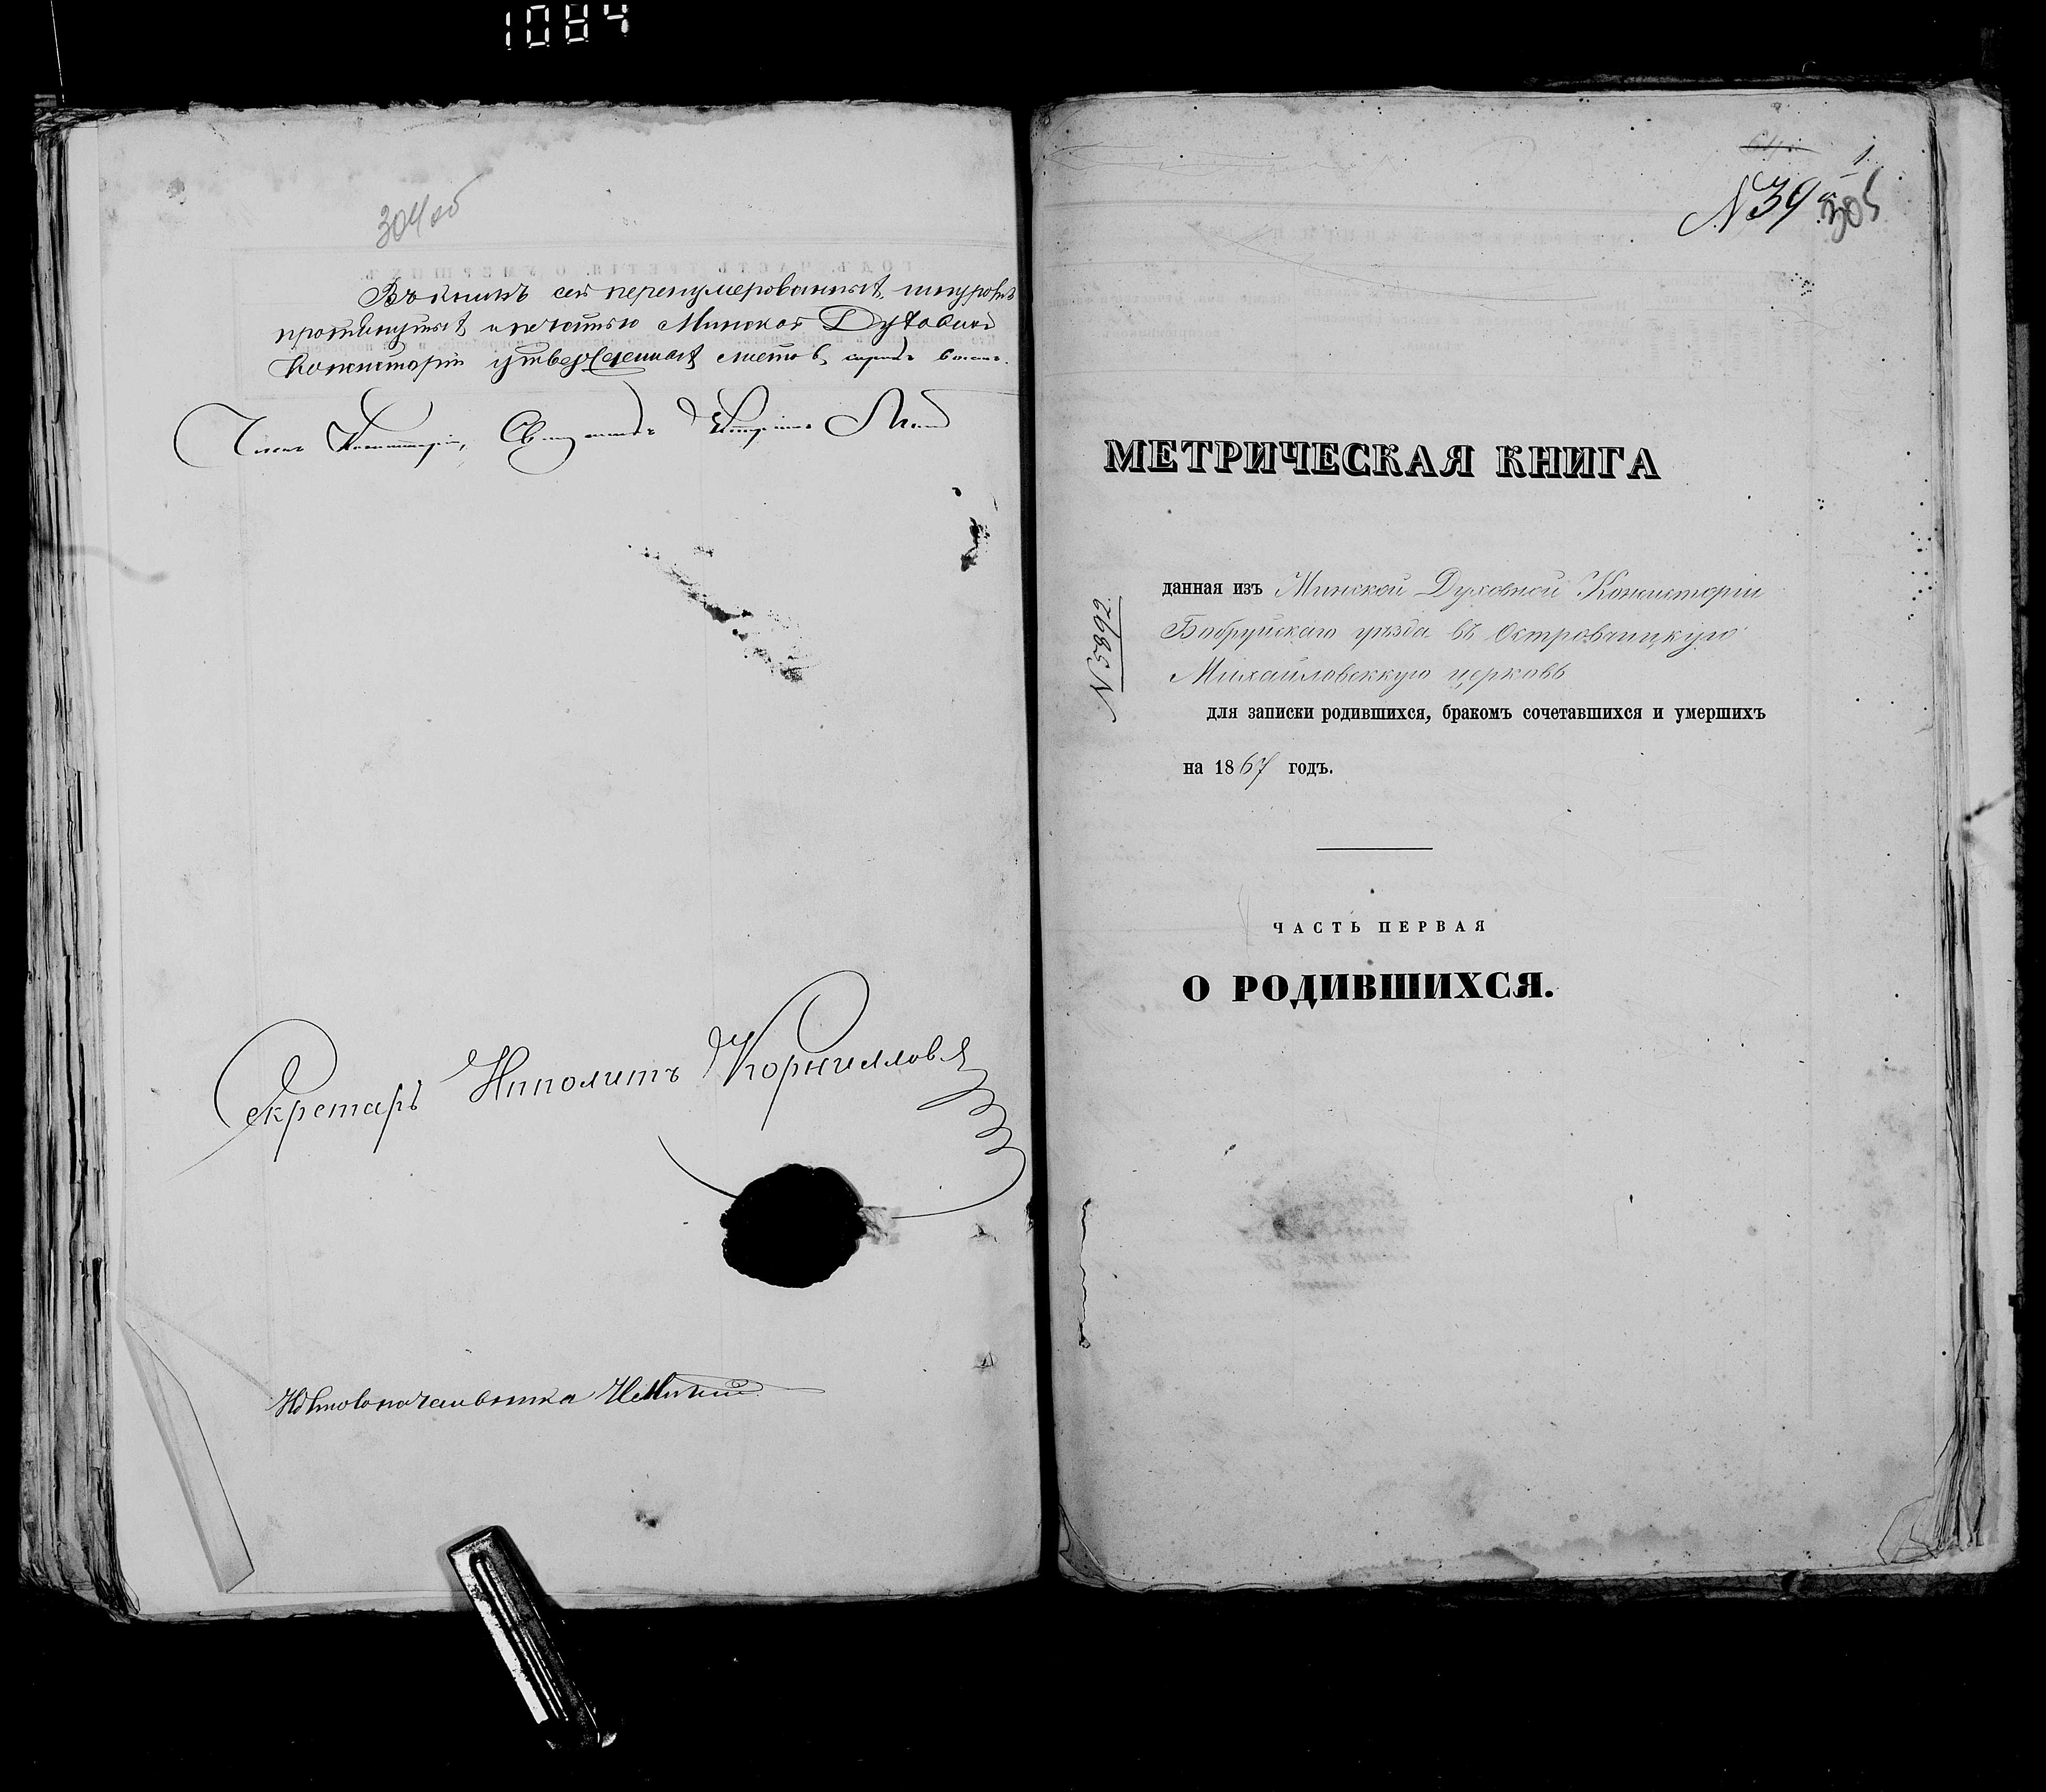 1084
304об
Въ книгѣ сей перенумерованныхъ, шнуромъ
протянутыхъ и печатью Минской Духовной
Консисторіи утвержденныхъ листовъ сорокъ восемь.
Членъ Консисторіи, Священникъ
Секретарь Ипполитъ Корнилловъ
1
N 39й
305
МЕТРИЧЕСКАЯ КНИГА
N 5892
данная изъ Минской Духовной Консисторіи
Бобруйскаго уѣзда въ Островчицкую
Михайловскую церковь
для записки родившихся, бракомъ сочетавшихся и умершихъ
на 1867 годъ.
ЧАСТЬ ПЕРВАЯ
О РОДИВШИХСЯ.